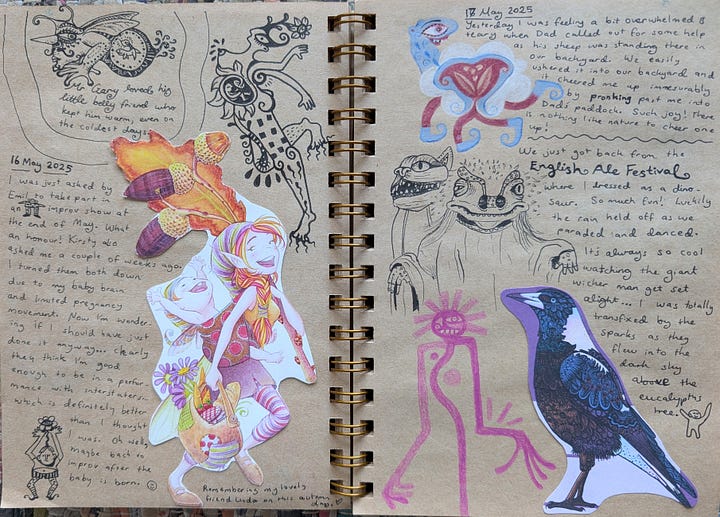 Mr Leary loved his
little belly friend who
kept him warm, even on
the coldest days.
16 May 2025
I was just asked by
Emil to take part in
an improv show at
the end of May. What
an honour! Kirsty also
asked me a couple of weeks ago.
I turned them both down
due to my baby brain
and limited pregnancy
movement. Now I'm wonder-
ing if I should have just
done it anyway... clearly
they think I'm good
enough to be in a perfor-
mance with interstaters...
which is definitely better
than I thought
I was. Oh well,
maybe back to
improv after the
baby is born.
Remembering my lovely
friend Linda on this autumn
day.
18 May 2025
Yesterday I was feeling a bit overwhelmed &
teary when Dad called out for some help
as his sheep was standing there in
our backyard. We easily
ushered it into our backyard and
it cheered me up immeasurably
by pronking past me into
Dad's paddock. Such joy! There
is nothing like nature to cheer one
up!
We just got back from the
English Ale Festival
where I dressed as a dino-
saur. So much fun! Luckily
the rain held off as we
paraded and danced.
It's always so cool
watching the giant
wicker man get set
alight... I was totally
transfixed by the
sparks as they
flew into the
dark sky
above the
eucalyptus
tree.